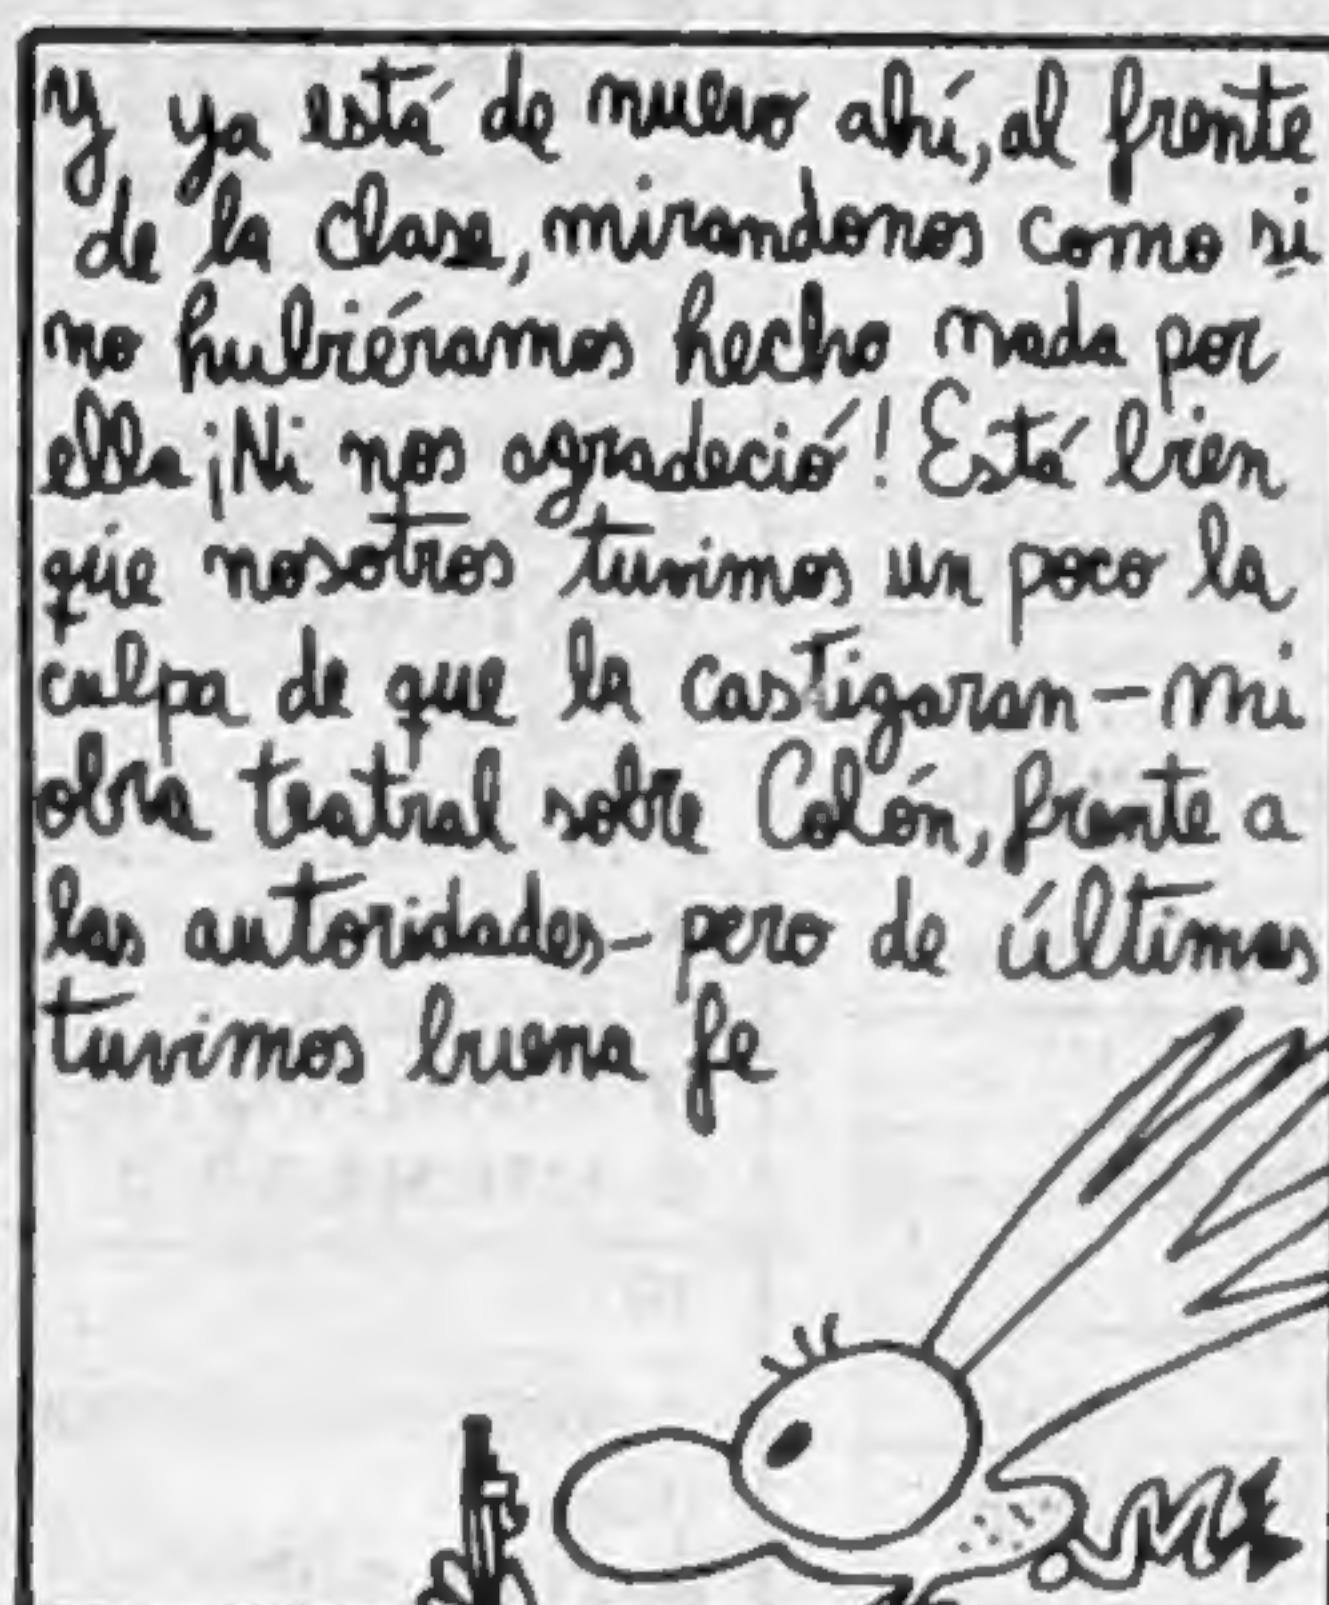 Y ya está de nuevo ahí, al frente
de la clase, mirandonos como si
no hubiéramos hecho nada por
ella ¡Ni nos agradeció! Está bien
que nosotros tuvimos un poco la
culpa de que la castigaran - mi
obra teatral sobre Colón, frente a
las autoridades - pero de últimas
tuvimos buena fe